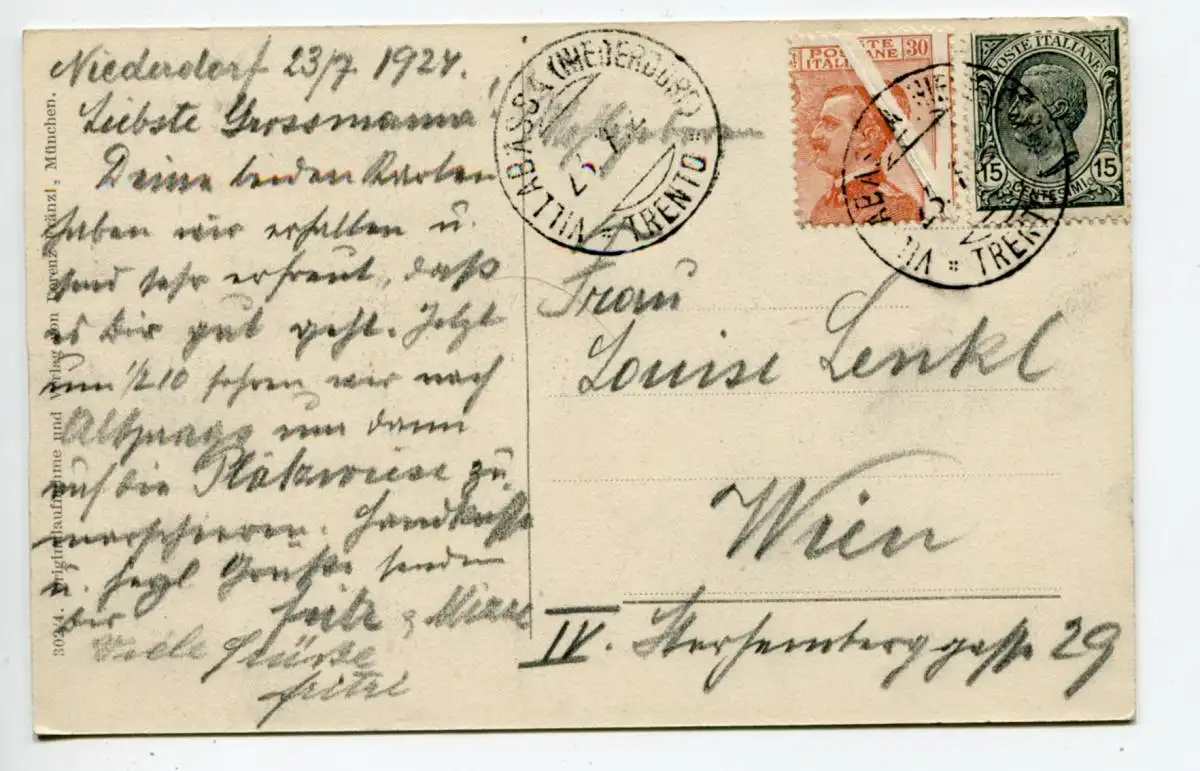 Niederdorf 23/7 1924.
Liebste Grossmama!
Deine beiden Karten
haben wir erhalten u.
sind sehr erfreut, daß
es Dir gut geht. Jetzt
um 1/2 10 fahren wir nach
Altprags um dann
auf die Plätzwiese zu
marschieren. Handküsse
u. herzl Grüße senden
dir Fritz &
Viele Grüsse
Fritzi
30244. Originalaufnahme und Verlag von Lorenz Fränzl, München.
VILLABASSA (NIEDERDORF)
TRENTO
POSTE ITALIANE 30
POSTE ITALIANE
15 CENTESIMI 15
TRENTO
Frau
Louise Lenkl
Wien
IV. Starhemberggasse 29